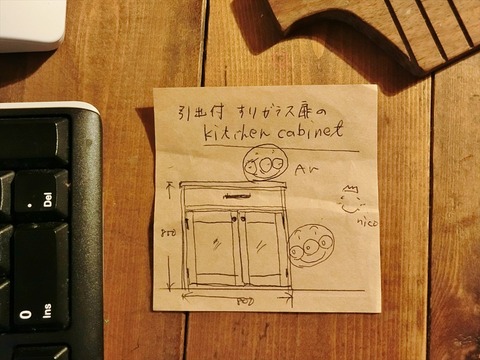 引出付 すりガラス扉の
kitchen cabinet
An
nico
850
800
.
Del
0
Ins